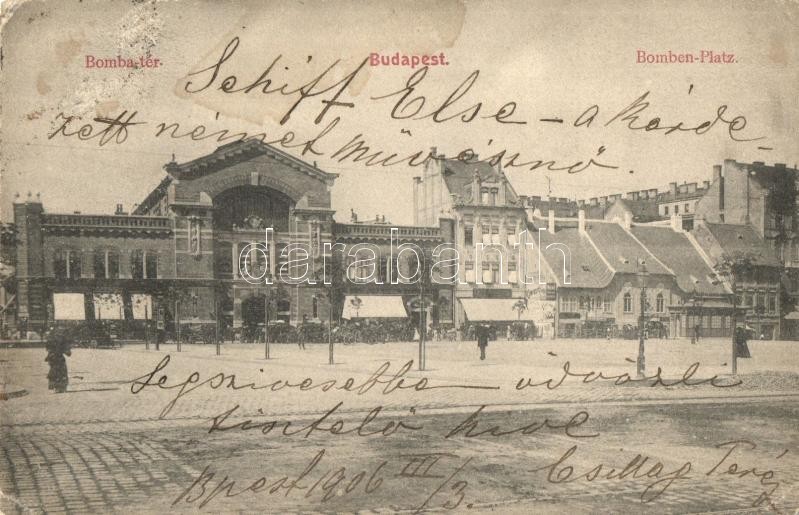 Bomba-tér. Budapest. Bomben-Platz.
Schiff Else - a kérde-
zett német művésznő.
darabanth
Legszivesebben üdvözli
tisztelő hive
Bpest 1906 III/3. Csillag Teréz